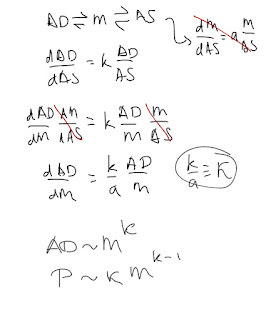 AD ⇌ m ⇌ AS
dm/dAS = a m/AS
dAD/dAS = k AD/AS
dAD/dm dm/dAS = k AD/m m/AS
dAD/dm = k/a AD/m
k/a ≡ k̄
AD ~ m^k
P ~ k m^(k-1)